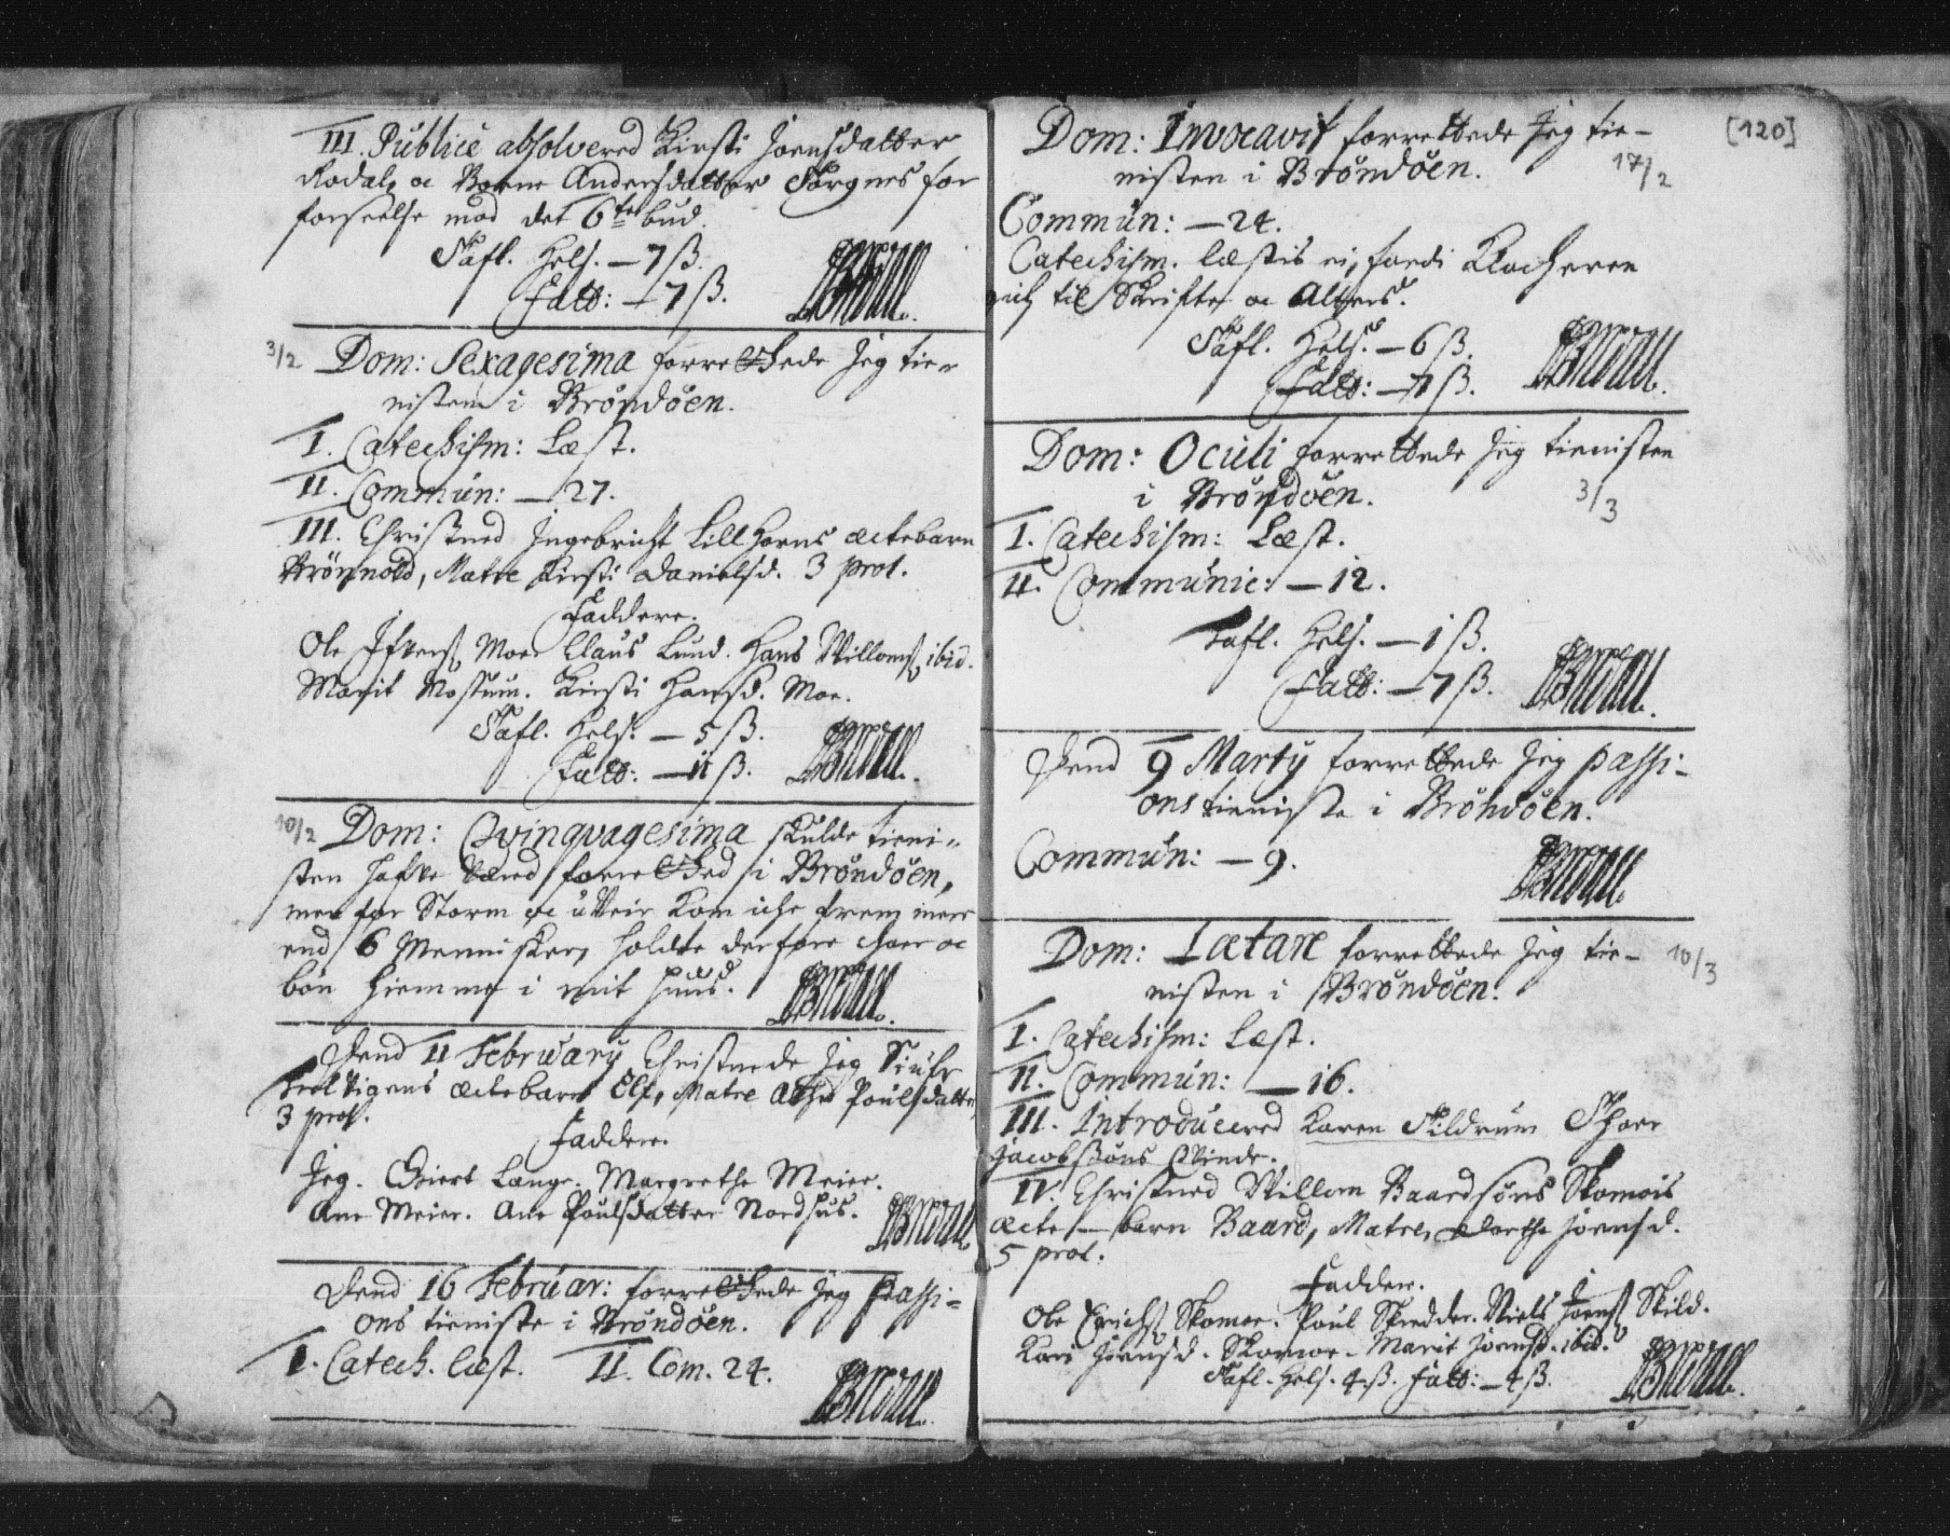 III. Publicè absolvered Kirsti Joensdatter
Rodal, oc Berne Andersdatter Torgnes for
forseelse mod det 6te bud.
Tafl. Hels. — 7 ß.
Fatt: — 7 ß.
3/2 Dom: Sexagesima forrettede Jeg tie-
nisten i Brøndøen.
I. Catechism: Læst.
II. Commun: — 27.
III. Christned Ingebricht Lillhorns ectebarn
Brønnold, Matre Kirsti Danielsd. 3 prot.
Faddere.
Ole Ifvers. Moe. Claus Lund. Hans Willoms. ibid.
Marit Mossum. Kirsti Hansd. Moe.
Tafl. Hels. — 5 ß.
Fatt: — 11 ß.
10/2 Dom: Qvinqvagesima skulde tieni-
sten hafve været forrettet i Brøndøen,
men for Storm oc uveir kom iche frem meer
end 6 Mennisker, holdte derfore choer oc
bøn hiemme i mit huus.
Dend 11 February Christnede Jeg
ectebarn Elf, Matre Poulsdatter
3 prot.
Faddere.
Jeg. Giert Lange. Margrethe Meier.
Ane Meier. Ane Poulsdatter Nordhus.
Dend 16 Februar: forrettede Jeg passi-
ons tieniste i Brøndøen.
I. Catech. læst. II. Com. 24.
[120]
Dom: Invocavit forrettede Jeg tie-
nisten i Brøndøen. 17/2
Commun: — 24.
Catechism. læstis ei, fordi Klocheren
gich til Skrifte oc Alters.
Tafl. Hels. — 6 ß.
Fatt: — 7 ß.
Dom: Oculi forrettede Jeg tienisten
i Brøndøen. 3/3
I. Catechism: Læst.
II. Communic: — 12.
Tafl. Hels. — 1 ß.
Fatt: — 7 ß.
Dend 9 Martij forrettede Jeg passi-
ons tieniste i Brøndøen.
Commun: — 9.
Dom: Lætare forrettede Jeg tie- 10/3
nisten i Brøndøen.
I. Catechism: Læst.
II. Commun: — 16.
III. Introducered Karen Tildrum Thoer
Jacobsøns Qvinde.
IV. Christned Willom Baardsøns Skomois
ecte — barn Baard, Matre, Dorthe Joensd.
5 prot.
Faddere.
Ole Erichs. Skomoe. Poul Skredder. Niels Joens. Skild.
Kari Joensd. Skomoe. Marit Joensd. ibid.
Tafl. Hels. 4 ß. Fatt: — 4 ß.